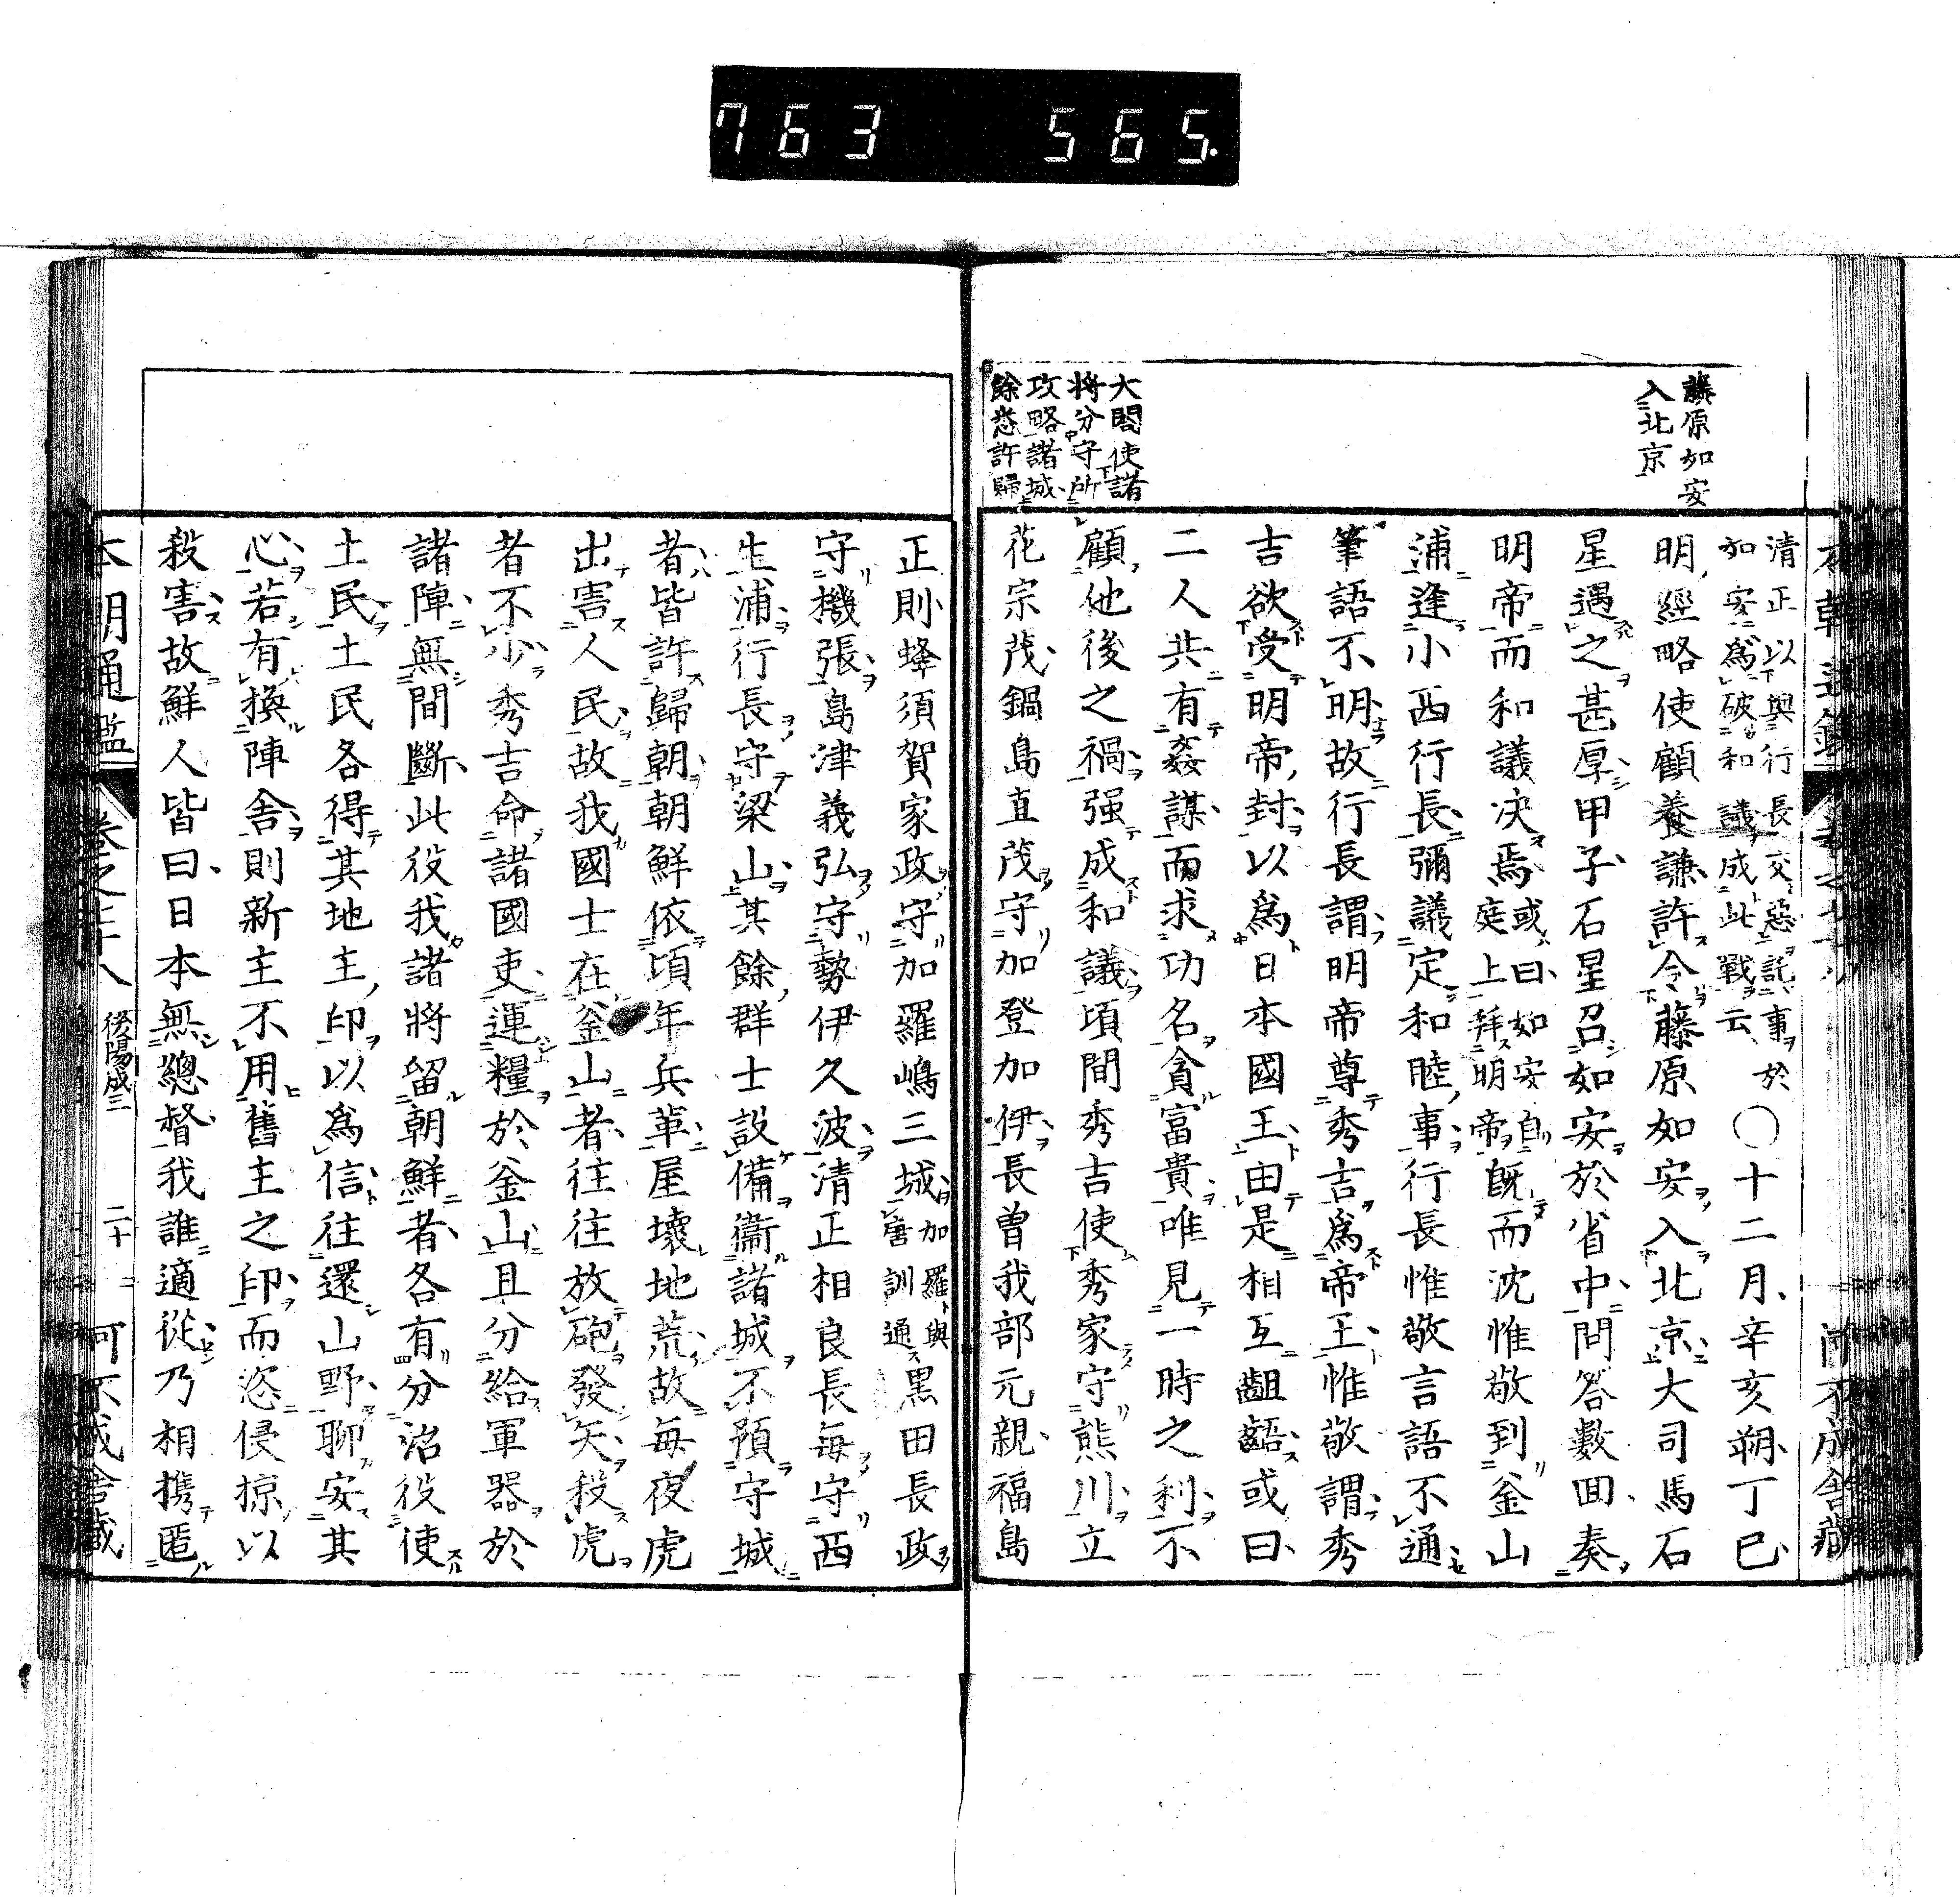 763 565.
藤原如安
入北京
大閤使諸
将分守所
攻略諸城
餘悉許歸
清正以與行長交惡託事於
如安為破和議成此戰云
○十二月辛亥朔丁巳
明經略使顧養謙許令藤原如安入北京大司馬石
星遇之甚厚甲子石星召如安於省中問答數囬奏
明帝而和議决焉
或曰如安自
庭上拜明帝
既而沈惟敬到釜山
浦逢小西行長彌議定和睦事行長惟敬言語不通
筆語不明故行長謂明帝尊秀吉為帝王惟敬謂秀
吉欲受明帝封以為日本國王由是相互齟齬或曰
二人共有姦謀而求功名貪富貴唯見一時之利不
顧他後之禍强成和議頃間秀吉使秀家守熊川立
花宗茂鍋島直茂守加登加伊長曽我部元親福島
正則蜂須賀家政守加羅嶋三城
加羅與
唐訓通
黒田長政
守機張島津義弘守勢伊久波清正相良長每守西
生浦行長守梁山其餘群士設備衞諸城不預守城
者皆許歸朝朝鮮依頃年兵革屋壞地荒故每夜虎
出害人民故我國士在釜山者往往放砲發矢殺虎
者不少秀吉命諸國吏運糧於釜山且分給軍器於
諸陣無間斷此役我諸將留朝鮮者各有分治役使
土民土民各得其地主印以為信往還山野聊安其
心若有換陣舎則新主不用舊主之印而恣侵掠以
殺害故鮮人皆曰日本無總督我誰適從乃相携匿
本朝通鑑 卷之 後陽成三 二十 可不成舎藏